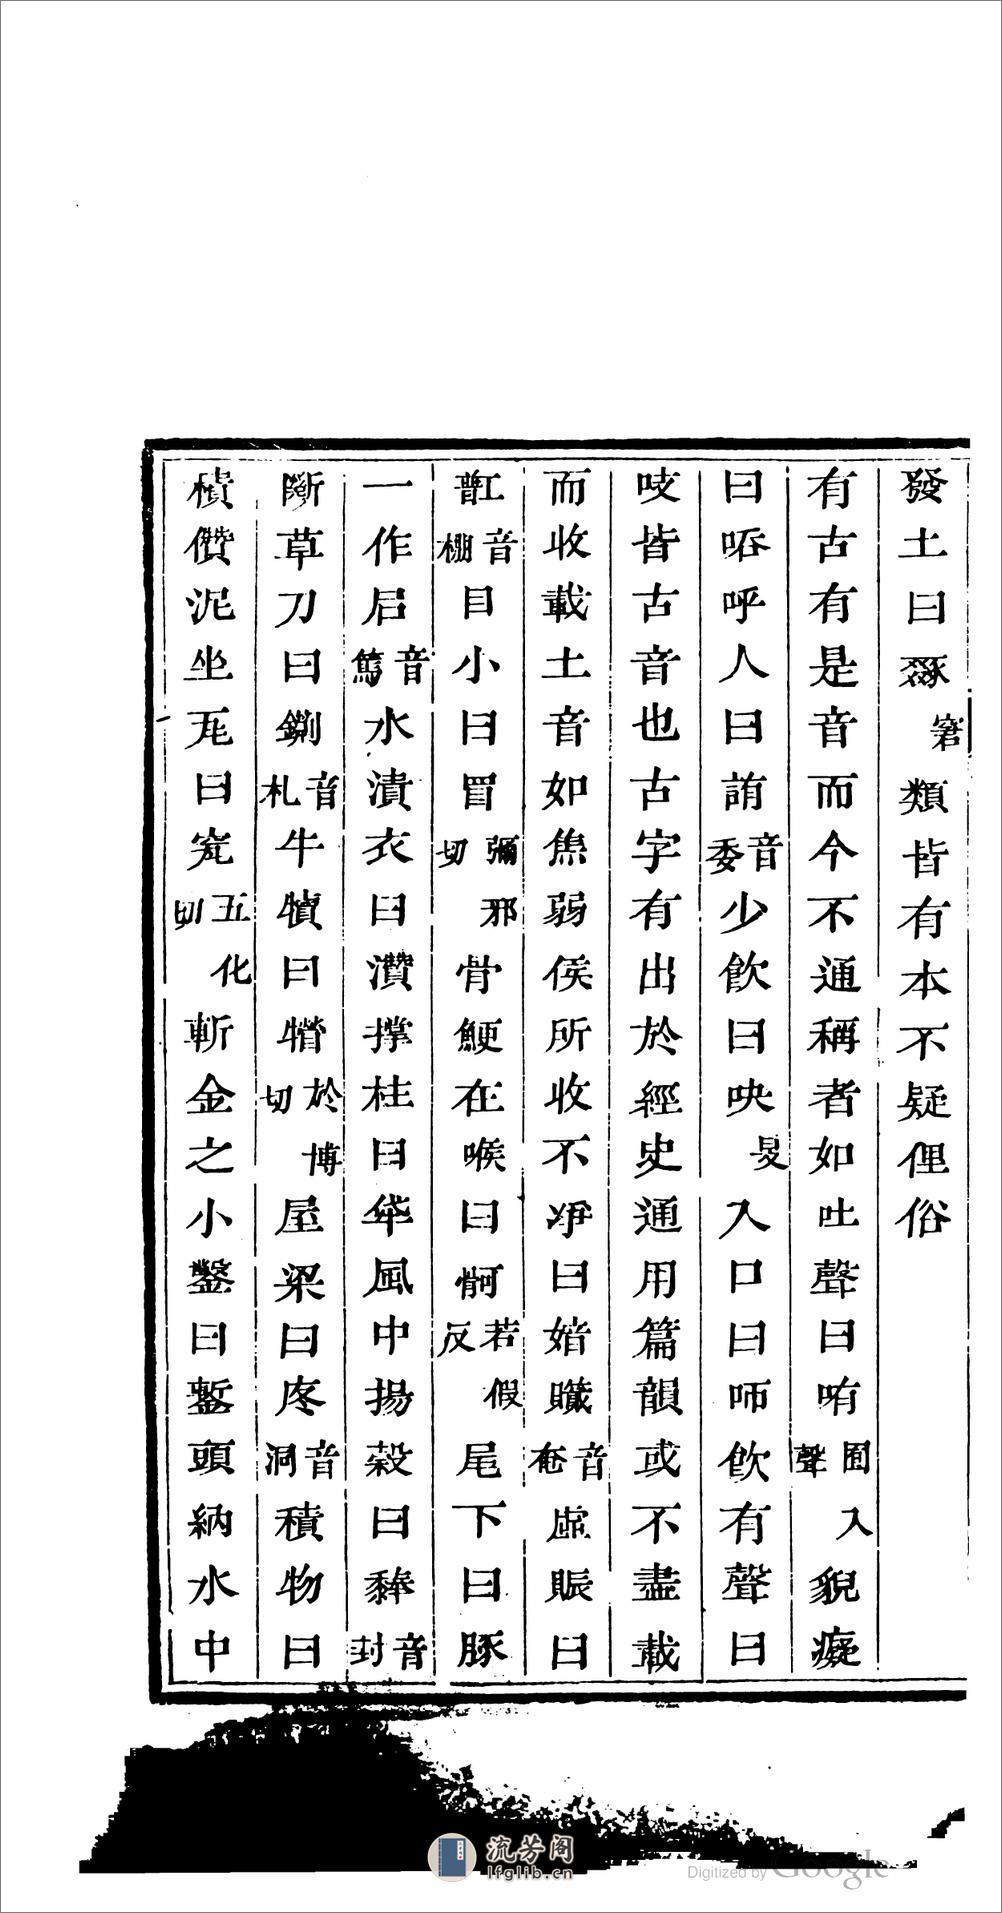 發土曰豩窘類皆有本不疑俚俗
有古有是音而今不通稱者如吐聲曰哊囿入聲貌癡
曰㕻呼人曰詴音委少飲曰吷旻入口曰咂飲有聲曰
吱皆古音也古字有出於經史通用篇韻或不盡載
而收載土音如焦弱侯所收不淨曰媕贜音奄虛賬曰
音棚目小曰彌邪切骨鯁在喉曰䯊若假反尾下曰豚
一作𡱂音篤水濆衣曰灒撑柱曰風中揚穀曰音封
斷草刀曰鍘音札牛犢曰於博切屋梁曰㡯音洞積物曰
積儹泥坐瓦曰䆗五化切斬金之小鑿曰鏨頭納水中